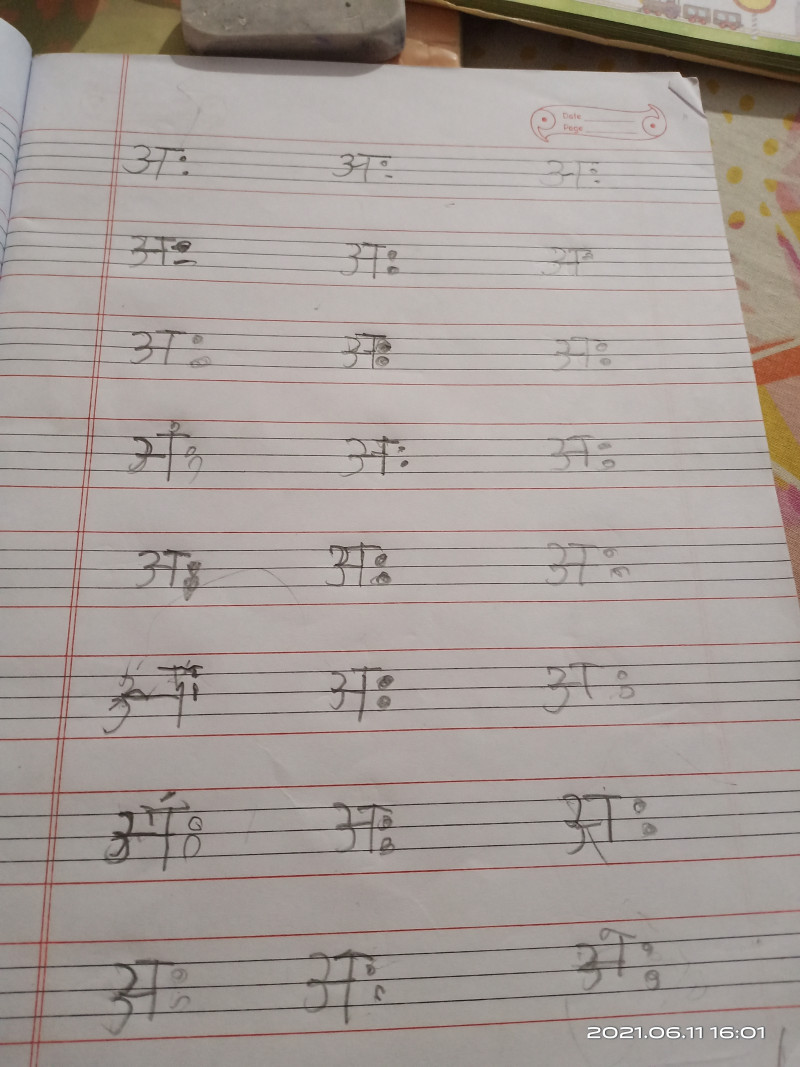 Date
Page
अः अः अः
अः अः अः
अः अः अः
अः अः अः
अः अः अः
अः अः अः
अः अः अः
अः अः अः
2021.06.11 16:01